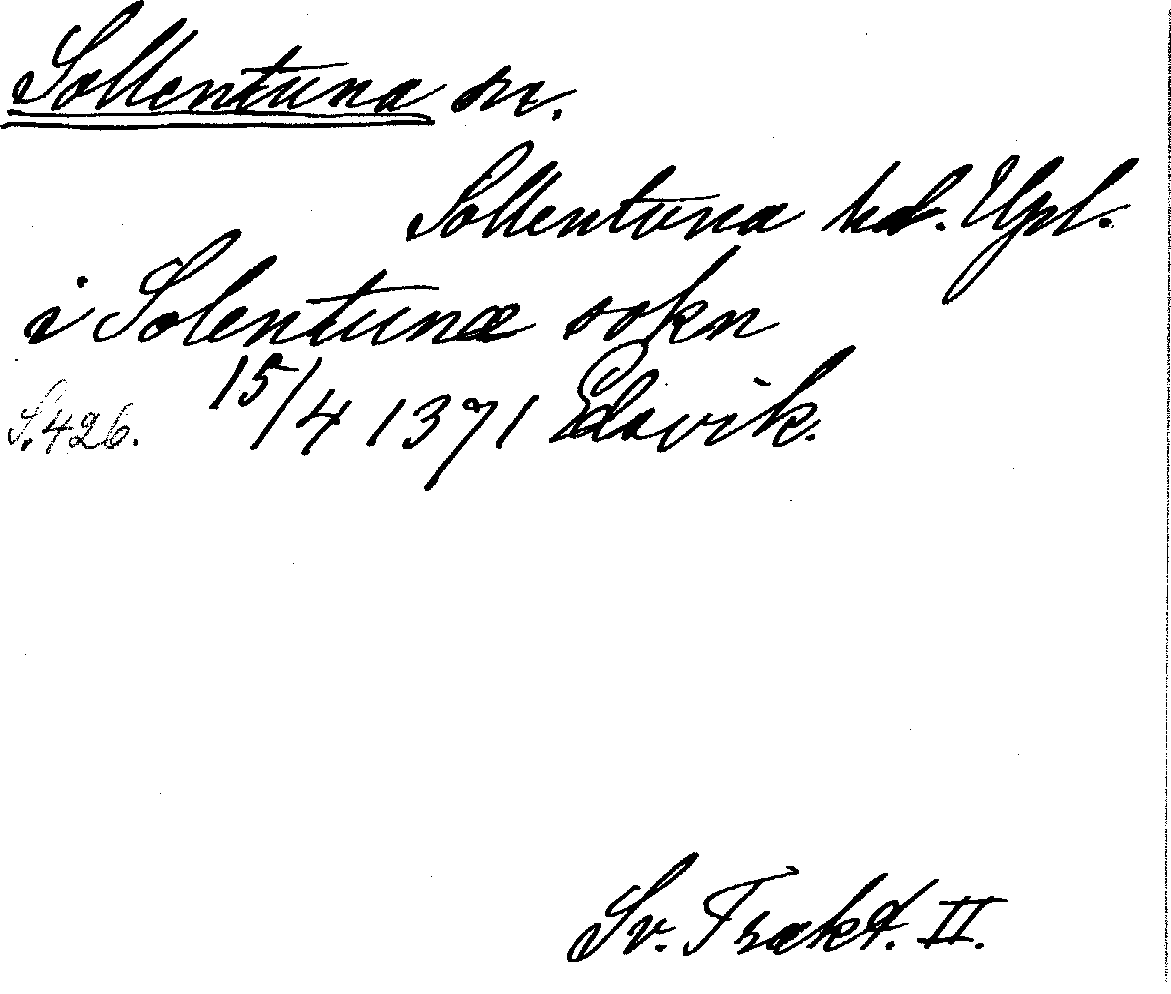 Sollentuna sn.
Sollentuna hd. Upl.
i Solentunæ sokn
S. 426. 15/4 1371 Edsvik.
Sv. Trakt. II.